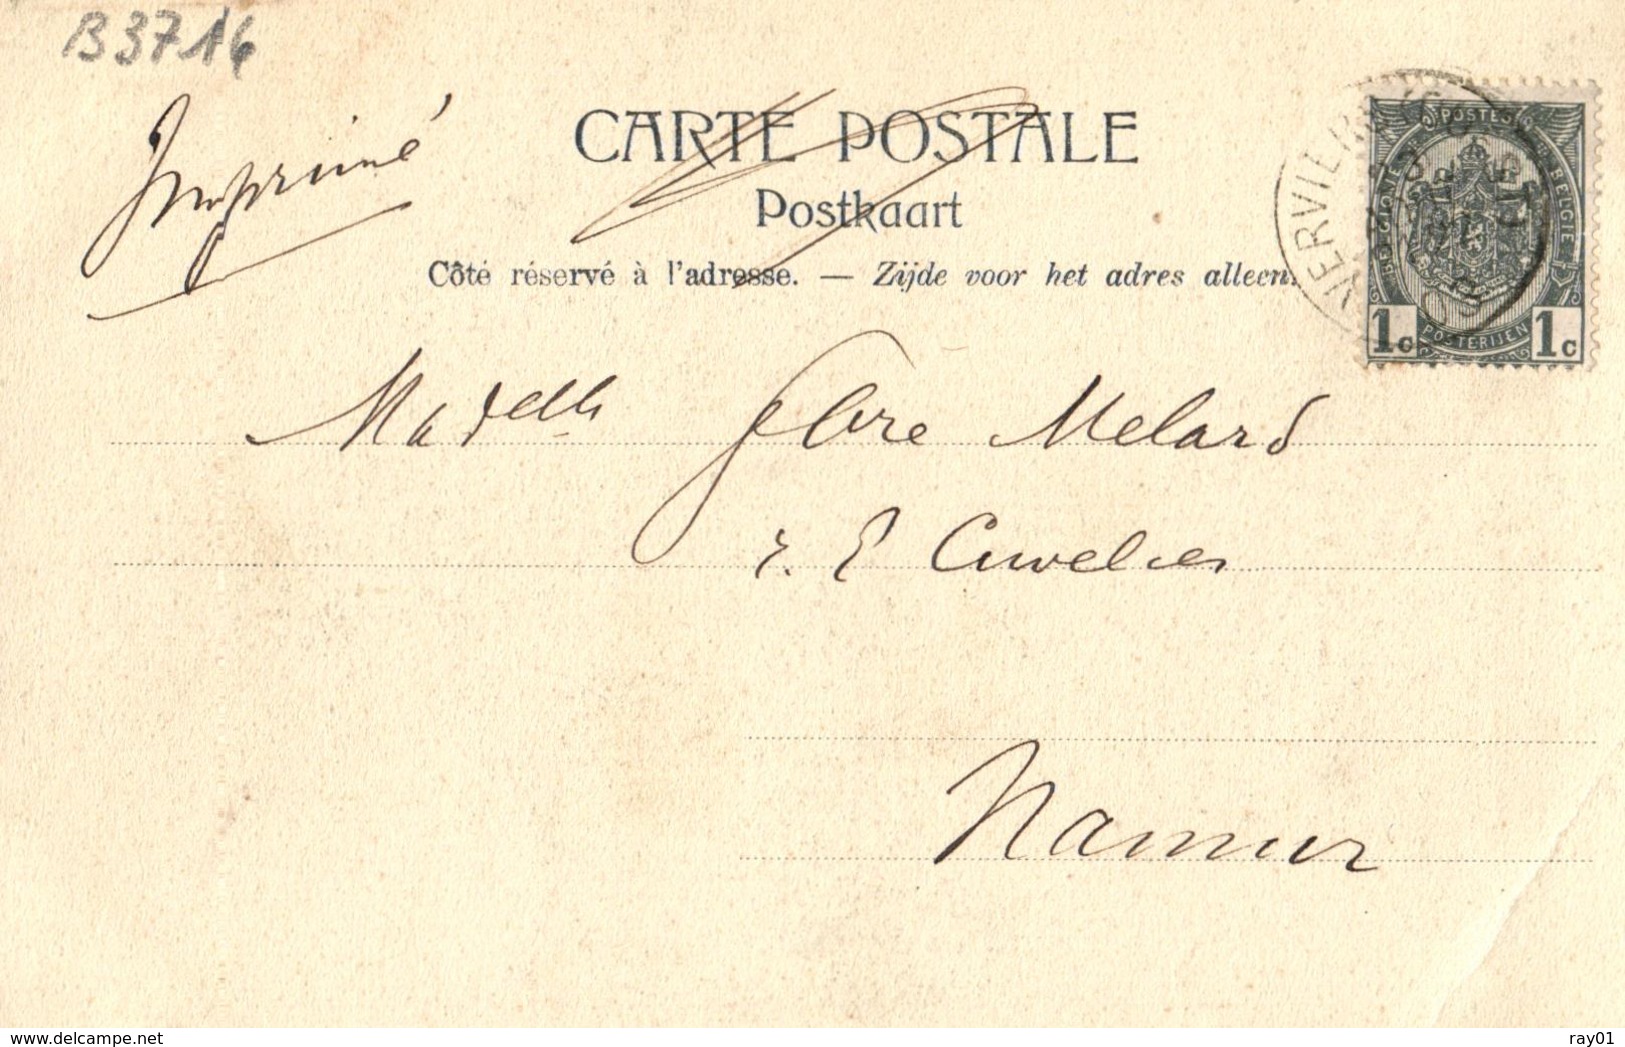 B3716
Imprimé
CARTE POSTALE
Postkaart
Côté réservé à l'adresse. — Zijde voor het adres alleen.
VERVIERS
POSTES
BELGIQUE BELGIE
1c POSTERIJEN 1c
Madelle Melard
r. E Cuvelier
Namur
www.delcampe.net
ray01